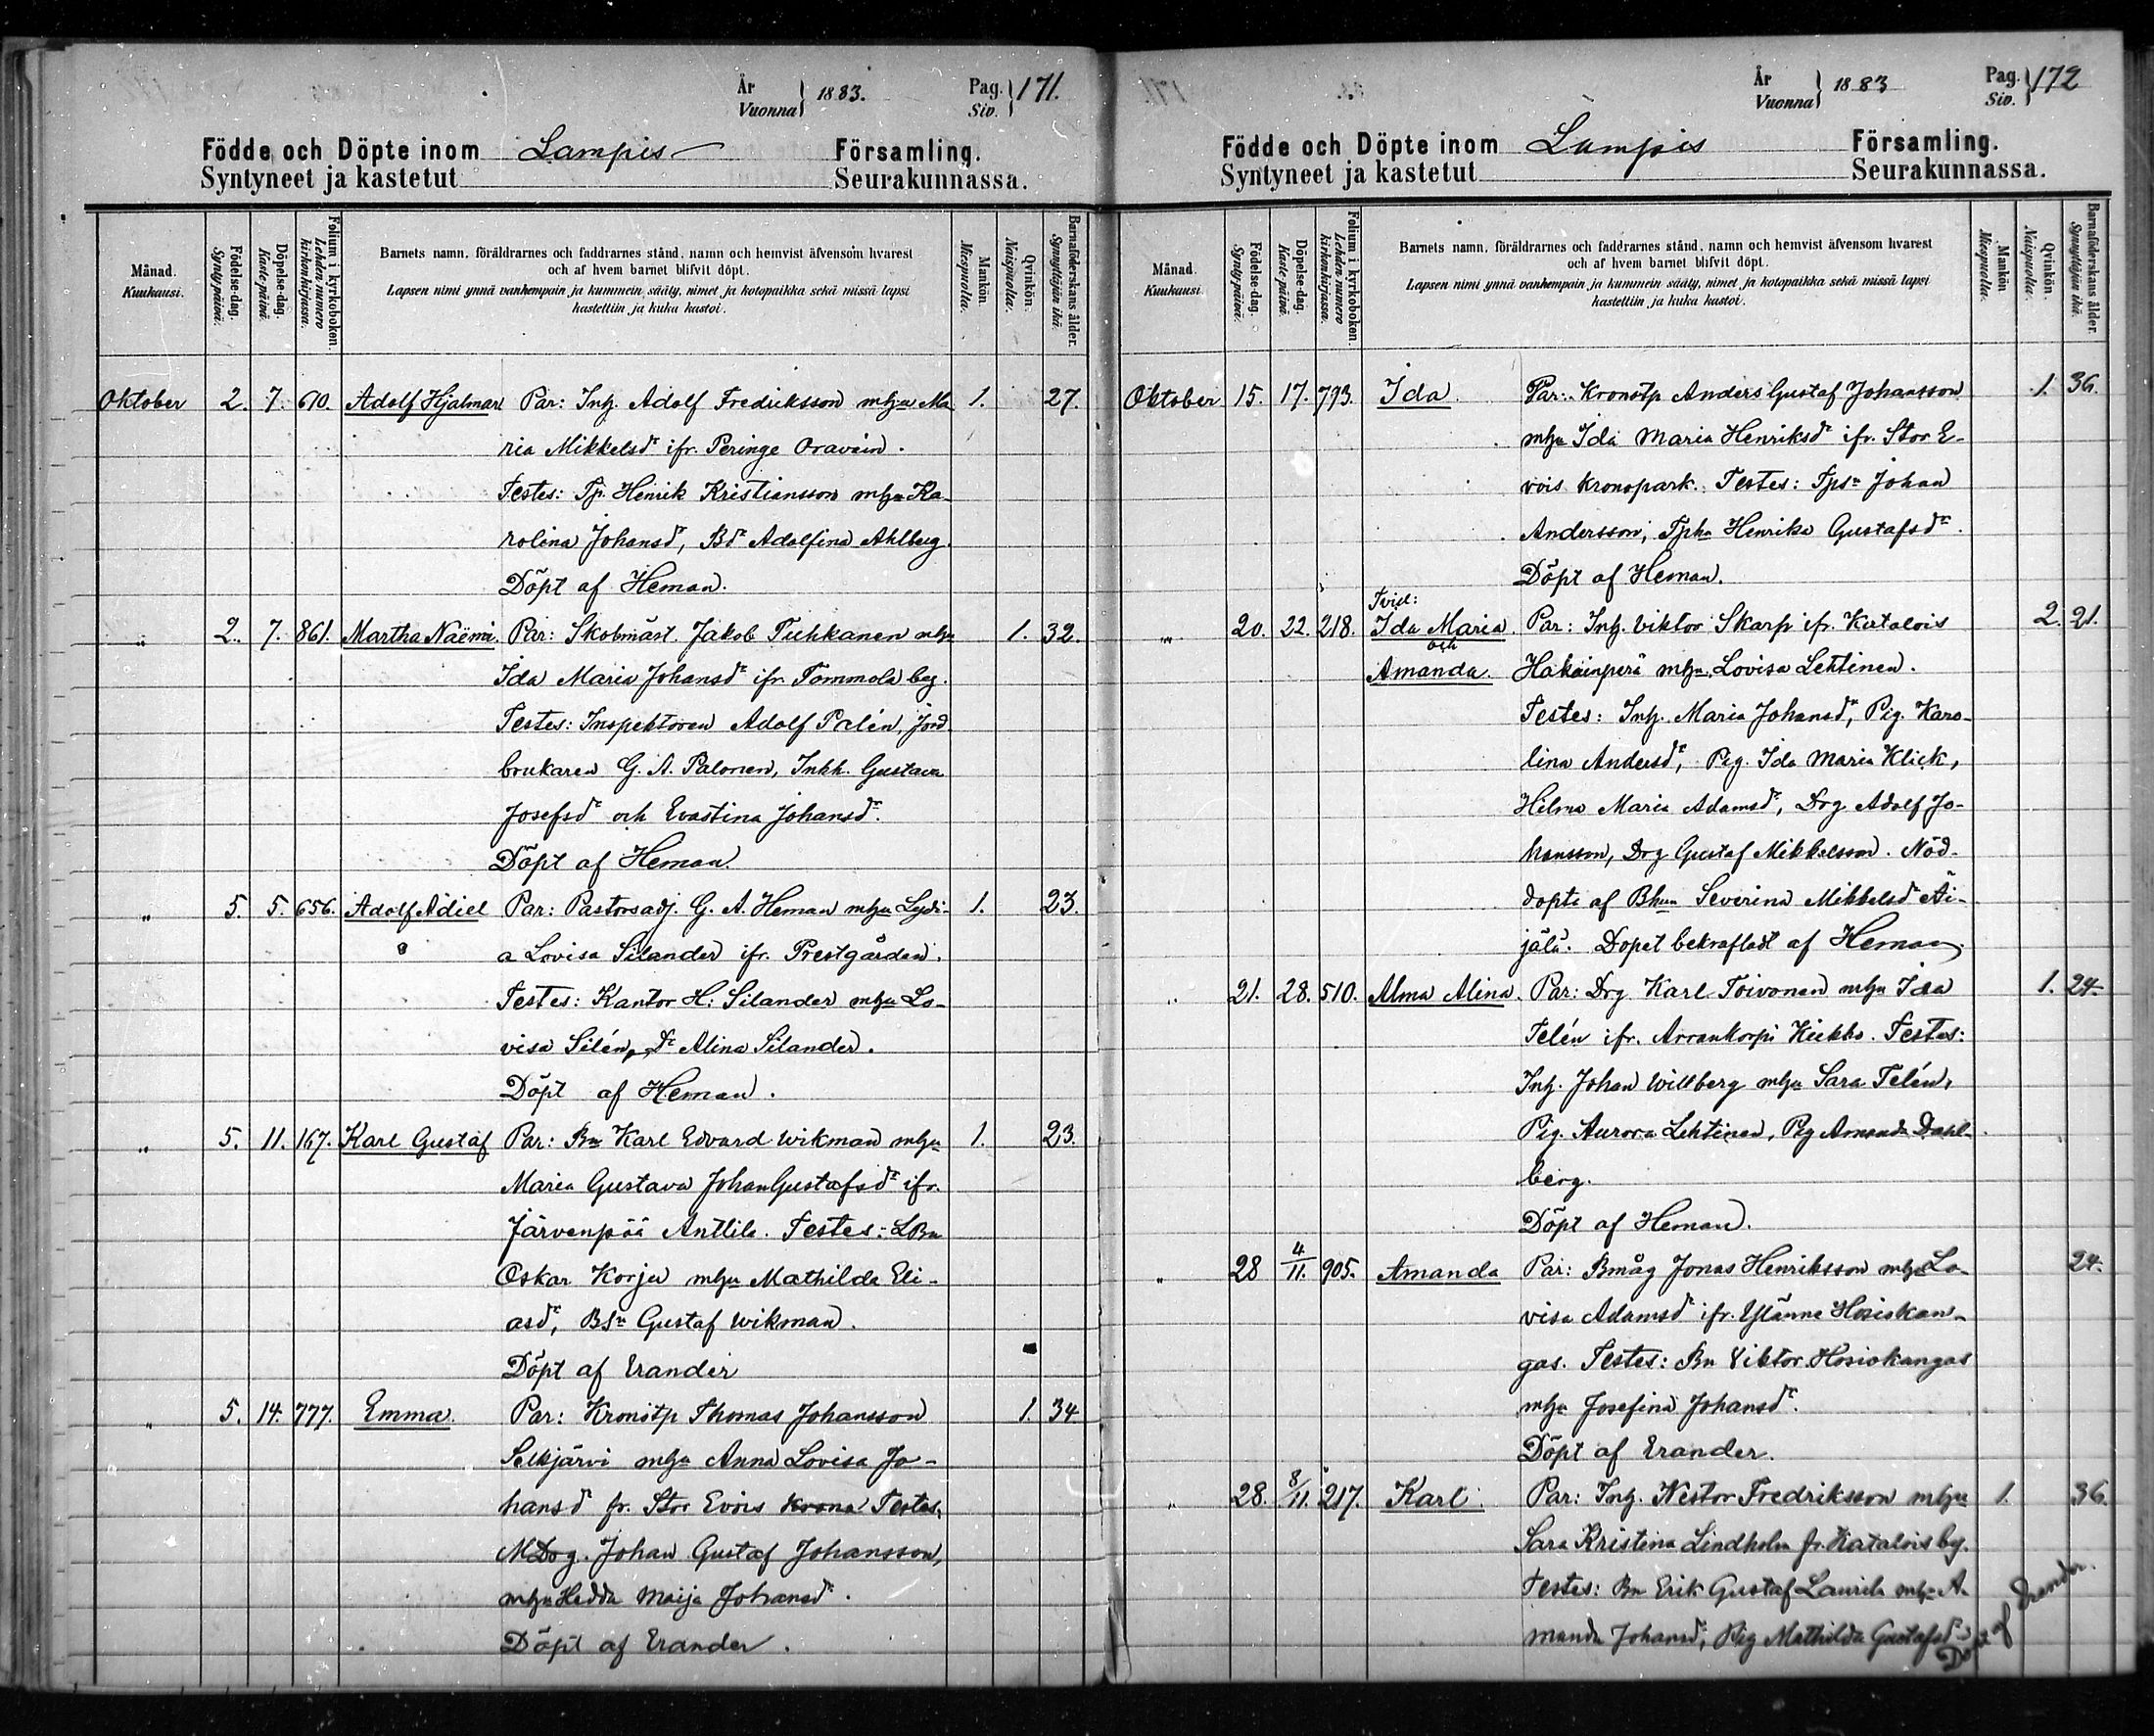 År
Vuonna } 1883. Pag.
Siv. } 171.
Födde och Döpte inom Lampis Församling.
Syntyneet ja kastetut Seurakunnassa.
Månad.
Kuukausi.
Födelse-dag.
Syntypäivä.
Döpelse-dag.
Kaste-päivä.
Folium i kyrkoboken.
Lehden numero
kirkonkirjassa.
Barnets namn, föräldrarnes och faddrarnes stånd, namn och hemvist äfvensom hvarest
och af hvem barnet blifvit döpt.
Lapsen nimi ynnä vanhempain ja kummein sääty, nimet ja kotopaikka sekä missä lapsi
kastettiin ja kuka kastoi.
Mankön.
Miespuolta.
Qvinkön.
Naispuolta.
Barnaföderskans ålder.
Synnyttäjän ikä.
Oktober 2. 7. 610. Adolf Hjalmar Par: Inh. Adolf Fredriksson mhu Ma 1. 27.
ria Mikkelsdr ifr. Peringe Oravain.
Testes: Tp. Henrik Kristiansson mhu Ka-
rolina Johansdr, Bdr Adolfina Ahlberg.
Döpt af Heman.
" 2. 7. 861. Martha Naëmi. Par: Skolmäst. Jakob Tuhkanen mhu 1. 32.
Ida Maria Johansdr ifr. Tommola beg.
Testes: Inspektoren Adolf Palén, Jord
brukaren G. A. Palonen, Inhh. Gustava
Josefsdr och Evastina Johansdr.
Döpt af Heman.
" 5. 5. 656. Adolf Adiel Par: Pastorsadj. G. A. Heman mhu Lydi- 1. 23.
a Lovisa Silander ifr. Prestgården.
Testes: Kantor H. Silander mhu Lo-
visa Silén, Dr Alina Silander.
Döpt af Heman.
" 5. 11. 167. Karl Gustaf Par: Bn Karl Edvard Wikman mhu 1. 23.
Maria Gustava JohanGustafsdr ifr.
Järvenpää Anttila. Testes: LBn
Oskar Korju mhu Mathilda Eli-
asdr, BSn Gustaf Wikman.
Döpt af Erander
" 5. 14. 777. Emma. Par: Kronotp Thomas Johansson 1. 34
Selkjärvi mhu Anna Lovisa Jo-
hansdr fr. Stor Evois Krono Testes,
MDrg. Johan Gustaf Johansson,
mhu Hedda Maija Johansdr.
Döpt af Erander.
År
Vuonna } 1883 Pag.
Siv. } 172
Födde och Döpte inom Lampis Församling.
Syntyneet ja kastetut Seurakunnassa.
Månad.
Kuukausi.
Födelse-dag.
Syntypäivä.
Döpelse-dag.
Kaste-päivä.
Folium i kyrkoboken.
Lehden numero
kirkonkirjassa.
Barnets namn, föräldrarnes och faddrarnes stånd, namn och hemvist äfvensom hvarest
och af hvem barnet blifvit döpt.
Lapsen nimi ynnä vanhempain ja kummein sääty, nimet ja kotopaikka sekä missä lapsi
kastettiin ja kuka kastoi.
Mankön
Miespuolta.
Qvinkön.
Naispuolta.
Barnaföderskans ålder.
Synnyttäjän ikä.
Oktober 15. 17. 793. Ida. Par: Kronotp Anders Gustaf Johansson 1. 36.
mhu Ida Maria Henriksdr ifr. Stor E-
vois kronopark. Testes: Tpsn Johan
Andersson, Tpha Henrika Gustafsdr.
Döpt af Heman.
Tvil:
" 20. 22. 218. Ida Maria. Par: Inh. Viktor Skarp ifr. Katalois 2. 21.
och
Amanda. Hakainperä mhu Lovisa Lehtinen.
Testes: Inh. Maria Johansdr, Pig. Karo-
lina Andersdr, Pig. Ida Maria Klick,
Hilma Maria Adamsdr, Drg Adolf Jo-
hansson, Drg Gustaf Mikkelsson. Nöd-
döpta af Bhun Severina Mikkelsdr Äi-
jälä. Dopet bekräftadt af Heman.
" 21. 28. 510. Alma Alina. Par: Drg Karl Toivonen mhu Ida 1. 24.
Telén ifr. Arrankorpi Kiekko. Testes:
Inh. Johan Willberg mhu Sara Telén,
Pig. Aurora Lehtinen, Pig Amanda Dahl-
berg.
Döpt af Heman.
" 28 4/11. 905. Amanda Par: Bmåg Jonas Henriksson mhu Lo- 24.
visa Adamsdr ifr. Ylänne Hosiokan-
gas. Testes: Bn Viktor Hosiokangas
mhu Josefina Johansdr.
Döpt af Erander.
" 28. 8/11. 217. Karl. Par: Inh. Nestor Fredriksson mhu 1. 36.
Sara Kristina Lindholm fr. Katalois by.
Testes: Bn Erik Gustaf Laurila mhu A-
manda Johansdr, Pig Mathilda Gustafsdr.
Döpt af Erander.